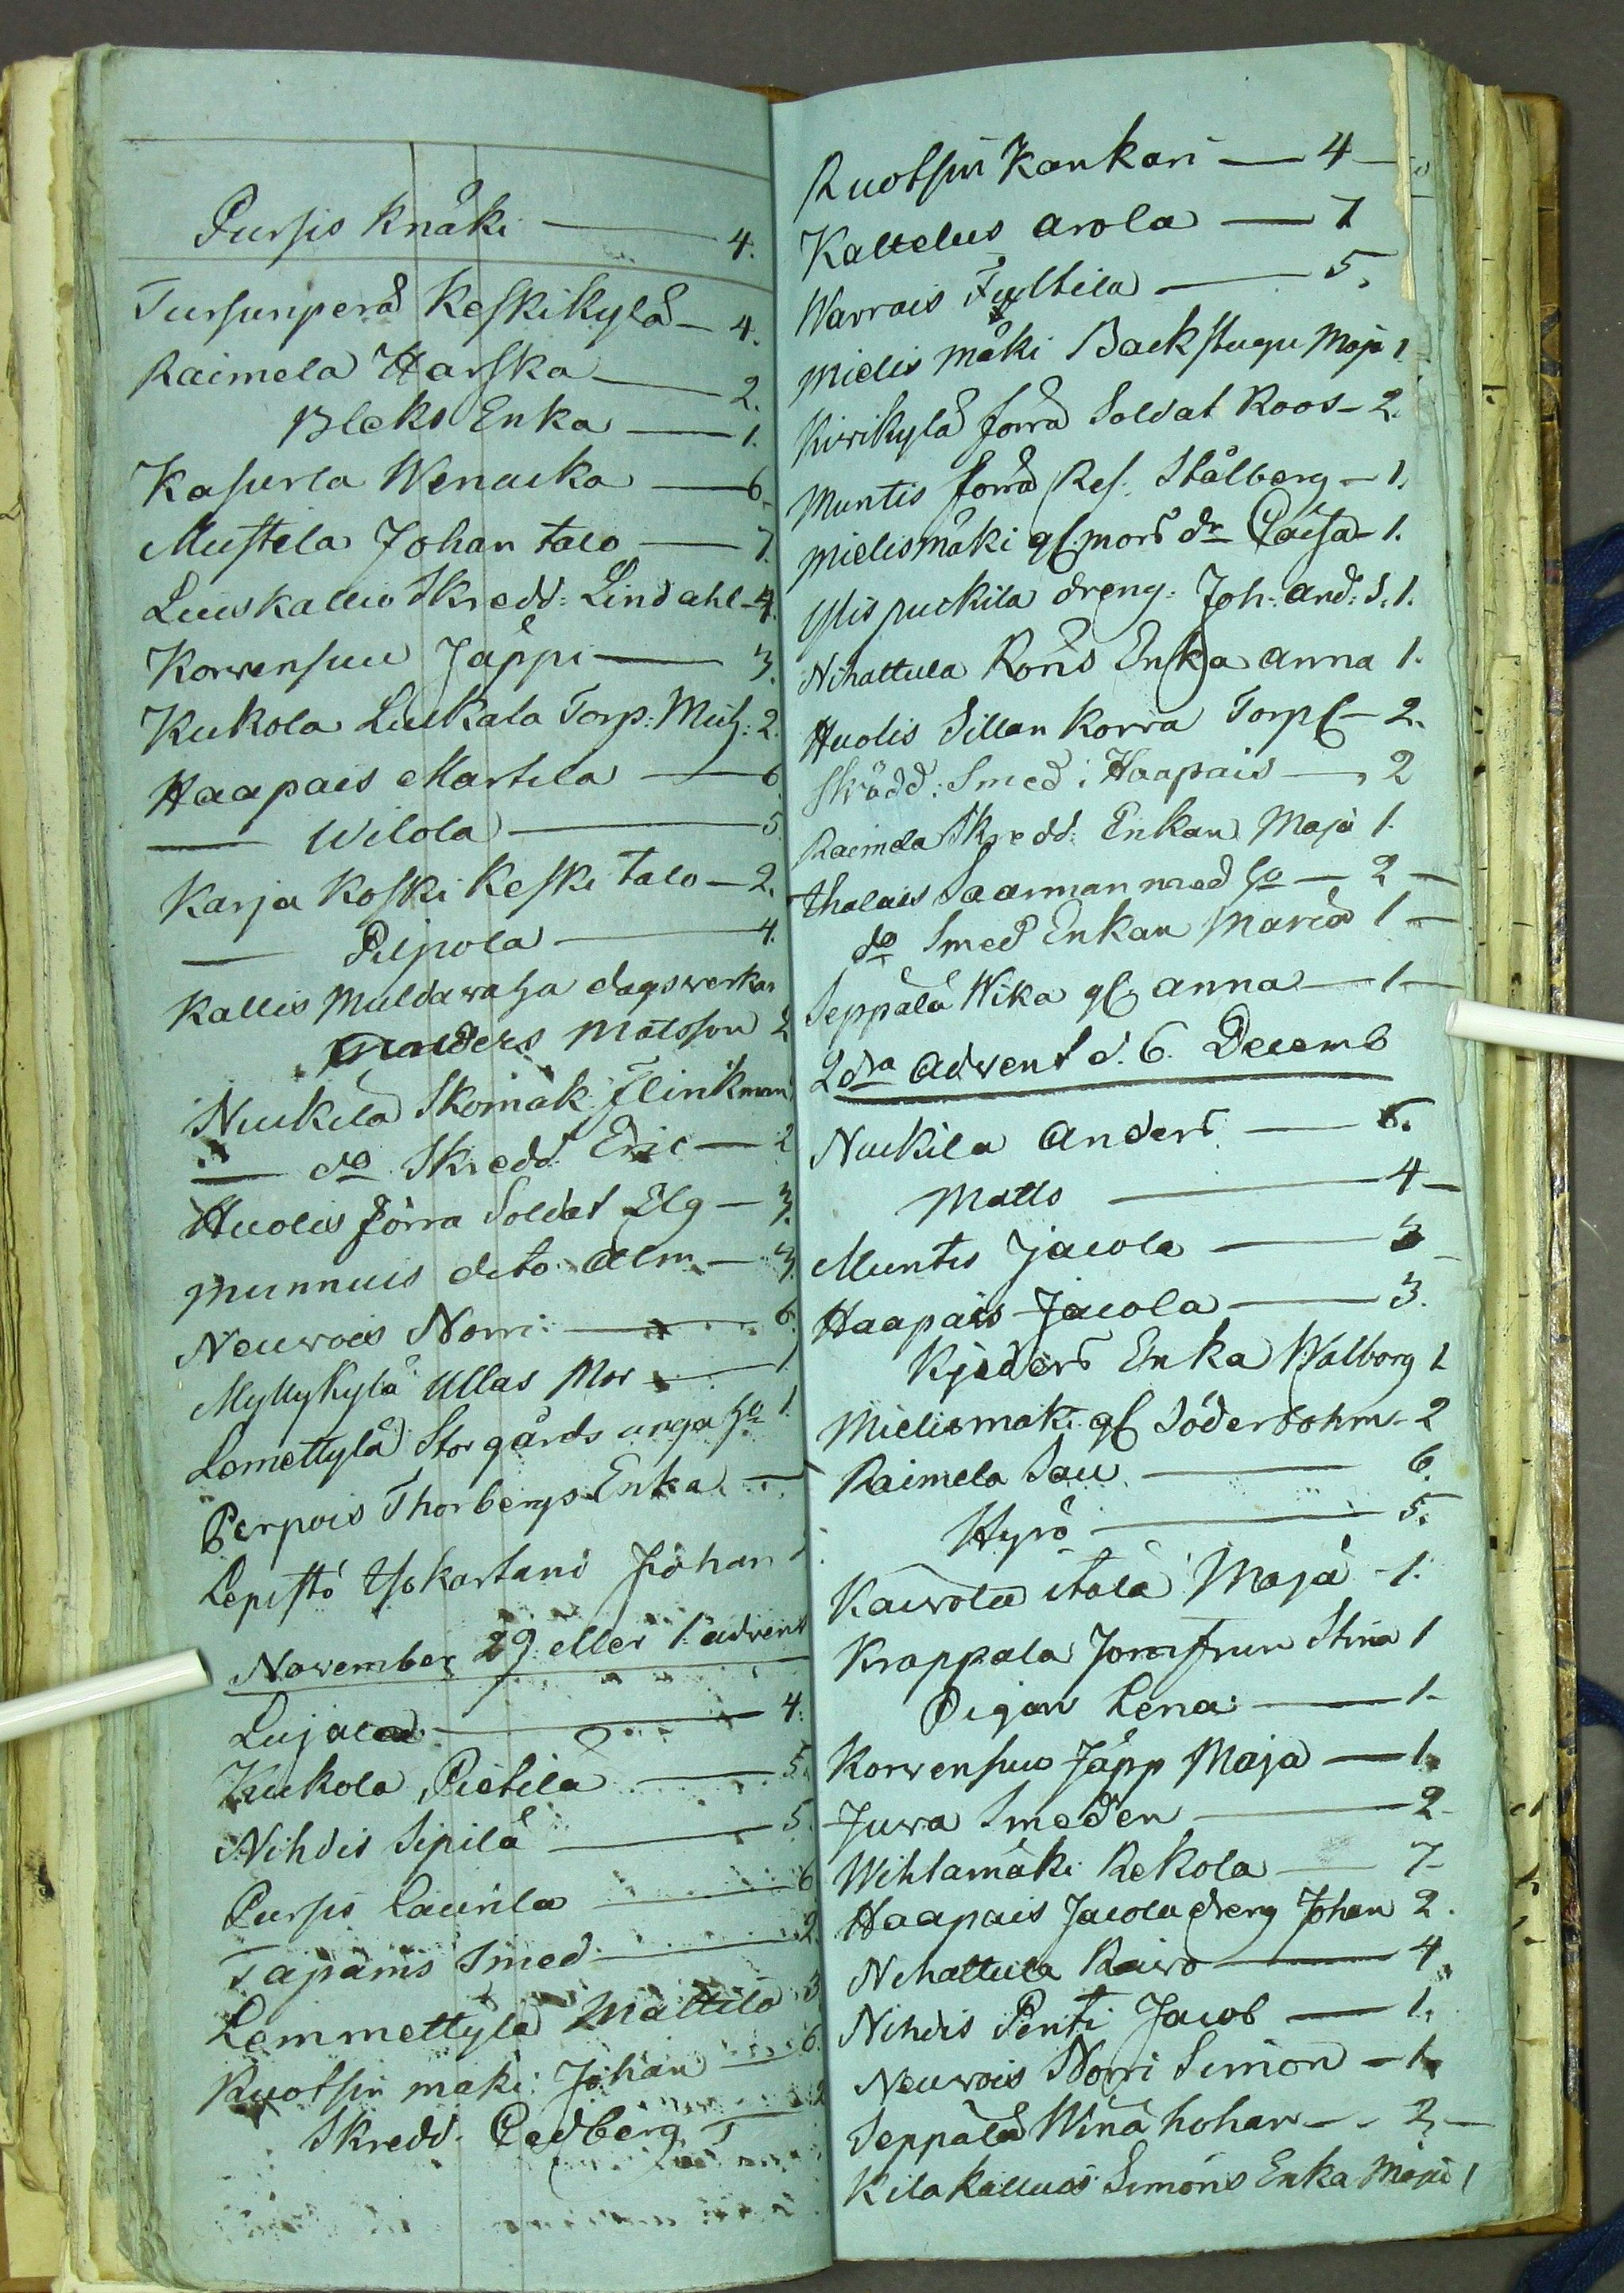 Pursis Knäki — 4.
Tursunperä Keskikylä — 4.
Raimela Harska — 2.
Bleks Enka — 1.
Kaserla Wenaka — 6.
Mustela Johan talo — 7.
Luuskallio Skredd: Lindahl — 4.
Korvensuu Jäppi — 3.
Kukola Luukala Torp: 2.
Haapais Martila — 6.
— Wilola — 5.
Karja Koski Keski talo — 2.
— Pilpola — 4.
Kallis Muldawaha dagsverkar
Anders Matsson 2
Nuckila Skomak: Flinkman
— do Skredd Eric — 2
Huolis förra Soldat Elg — 3.
Munnuis dito Alm — 3.
Neuvois Norri — 6.
Myllykylä Ullas Mor — 1
Lemettylä Storgårds unga 1.
Perpois Thorbergs Enka —
Lepistö Johan
November 29 eller 1. advent
Lujala — 4.
Kukola Pietilä — 5.
Nihdis Sipilä — 5.
Pursis Laurila — 6
Tapanis Smed — 2.
Lemmettylä Mattila 3
Ruotsin mäki Johan — 6.
Skredd. Pedberg 2
Ruotsin Kankari — 4 —
Kaltelus Arola — 7
Warrais Tultila — 5.
Mielis mäki Backstugu Maja 1
Kirikylä förra Soldat Roos — 2.
Muntis förra Res. Stålberg — 1.
Mielismäki gl. mors dr Caisa — 1.
Ylis puckila dreng: Joh: And: S. 1.
Nihattula Roris Enka Anna 1.
Huolis Sillan Korva Torp — 2.
Skrädd: Smed i Haapais — 2
Raimela Skredd: Enkan Maja 1.
Ihalais Saarman med — 2 —
do Smed Enkan Maria 1 —
Seppälä Wika gl Anna — 1 —
2dra Advent d. 6. Decemb
Nuckila Anders — 5.
Matts — 4 —
Muntis Jacola — 3
Haapais Jacola — 3.
Kjeders Enka Walborg 1
Mielismäki gl Söderbohm — 2
Raimela Sau — 6.
Hyrö — 5.
Kaurola itälä Maja — 1.
Krappala Jomfrun Stina 1
Pigan Lena — 1 —
Korvensuu Jäpp Maja — 1.
Juva Smeden — 2
Wihlamäki Rekola — 7 —
Haapais Jacola dreng Johan 2.
Nihattula Kaivo — 4.
Nihdis Penti Jacob — 1.
Neuvois Norri Simon — 1.
Seppälä Winä hohan — 2 —
Kila Kallios Simons Enka Maja 1